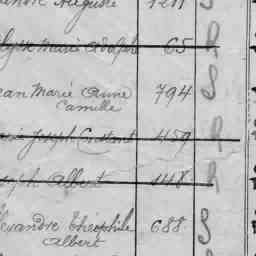 Auguste 1211 S
Marie Adolphe 65 R
Jean Marie Anne 794 S
Camille
Joseph Constant 459 R
Joseph Albert 148 R
Alexandre Théophile 688 S
Albert